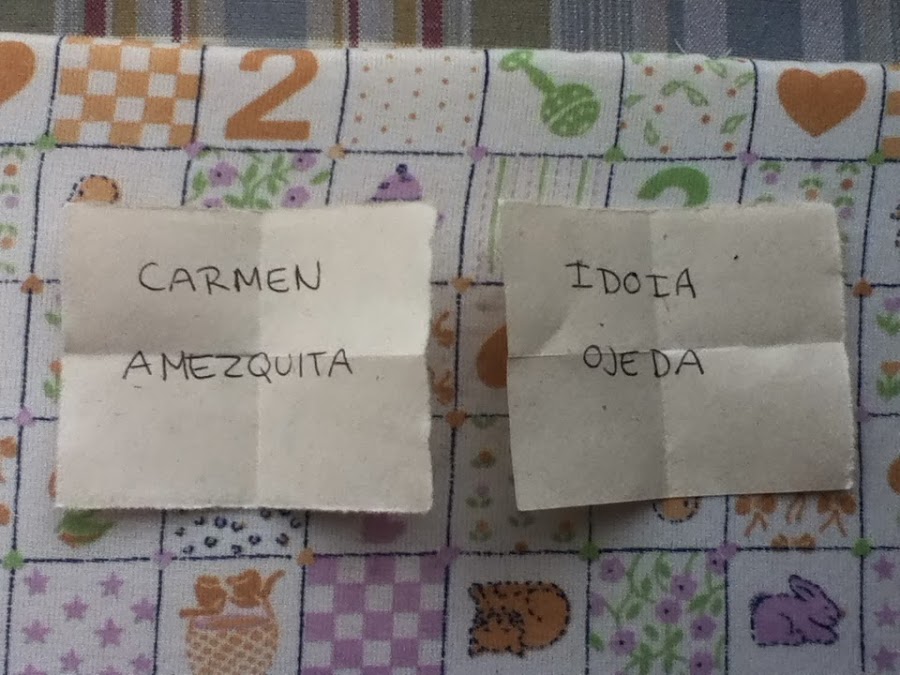 2
CARMEN
AMEZQUITA
IDOIA
OJEDA